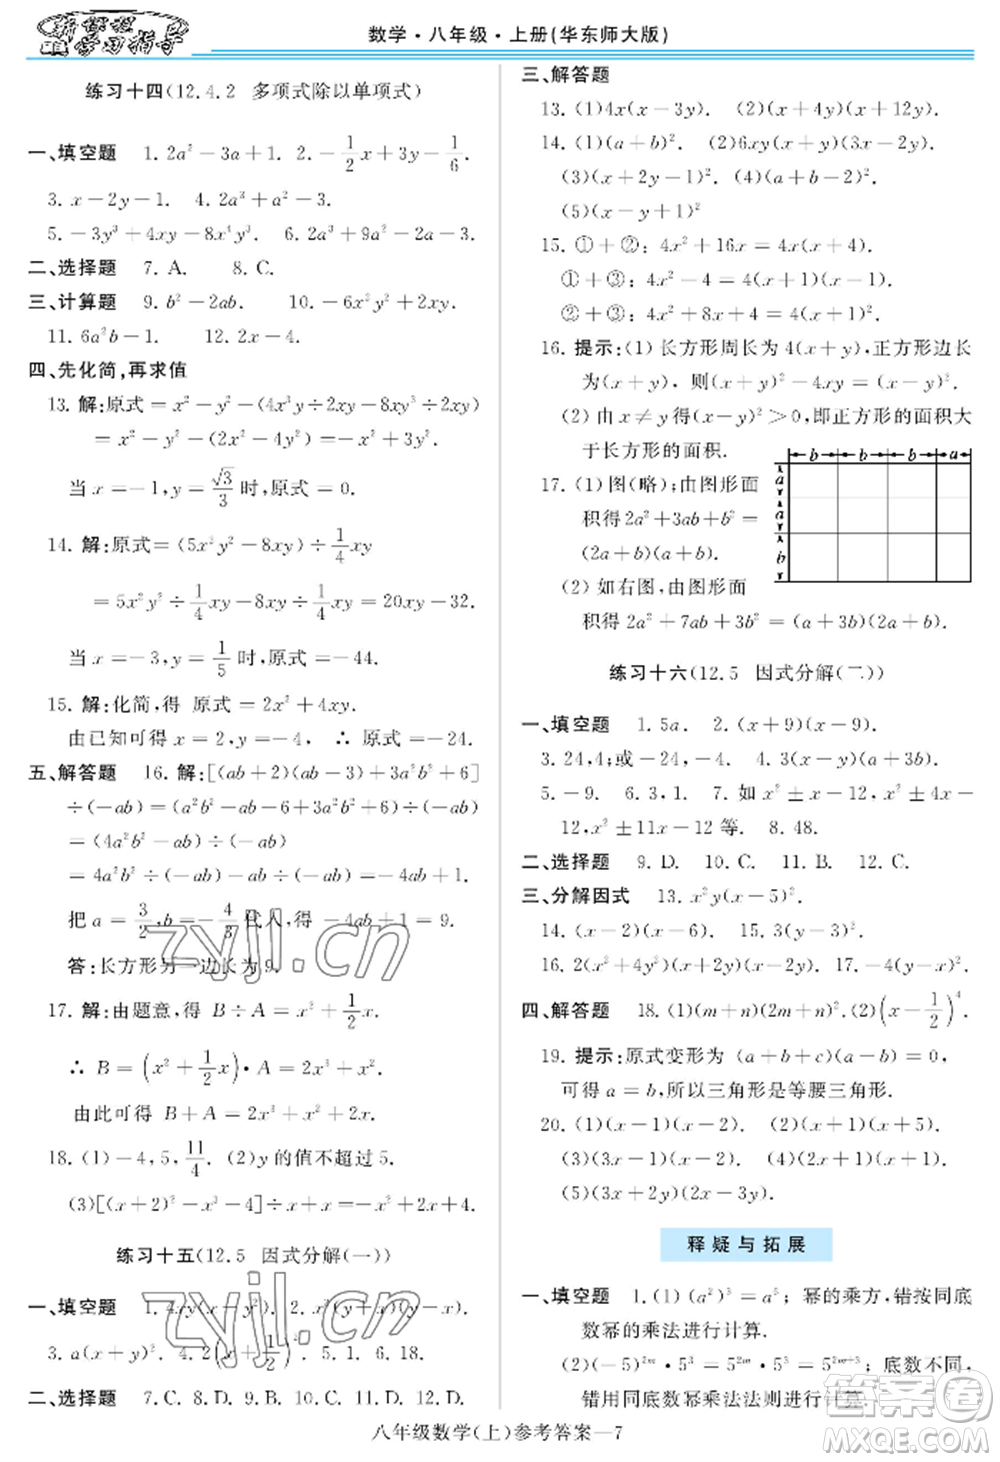 新课程
学习指导
数学·八年级·上册(华东师大版)
练习十四(12.4.2 多项式除以单项式)
一、填空题 1. 2a²−3a+1. 2. −1/2x+3y−1/6.
3. x−2y−1. 4. 2a³+a²−3.
5. −3y³+4xy−8x⁴y³. 6. 2a³+2a²−2a−3.
二、选择题 7. A. 8. C.
三、计算题 9. b²−2ab. 10. −6x²y²+2xy.
11. 6a²b−1. 12. 2x−4.
四、先化简,再求值
13. 解:原式=x²−y²−(4x³y÷2xy−8xy³÷2xy)
=x²−y²−(2x²−4y²)=−x²+3y².
当x=−1,y=√3/3时,原式=0.
14. 解:原式=(5x²y²−8xy)÷1/4xy
=5x²y²÷1/4xy−8xy÷1/4xy=20xy−32.
当x=−3,y=1/5时,原式=−44.
15. 解:化简,得 原式=2x²+4xy.
由已知可得x=2,y=−4, ∴ 原式=−24.
五、解答题 16. 解:[(ab+2)(ab−3)+3a²b²+6]
÷(−ab)=(a²b²−ab−6+3a²b²+6)÷(−ab)
=(4a²b²−ab)÷(−ab)
=4a²b²÷(−ab)−ab÷(−ab)=−4ab+1.
把a=3/2,b=−4/3代入,得−4ab+1=9.
答:长方形另一边长为9.
17. 解:由题意,得 B÷A=x²+1/2x.
∴ B=(x²+1/2x)·A=2x³+x².
由此可得 B+A=2x³+x²+2x.
18. (1)−4,5,11/4. (2)y的值不超过5.
(3)[(x+2)²−x³−4]÷x=−x²+x+4.
练习十五(12.5 因式分解(一))
一、填空题 1. 4xy(x+2y). 2. x²(y+x)(y−x).
3. a(x+y)². 4. 2(a+1/2)². 5. 1. 6. 18.
二、选择题 7. C. 8. D. 9. D. 10. C. 11. D. 12. B.
三、解答题
13. (1)4x(x−3y). (2)(x+4y)(x+12y).
14. (1)(a+b)². (2)6xy(x+y)(3x−2y).
(3)(x+y)². (4)(a+b)²(a−b)².
(5)(x−y+1)²
15. ①+②: 4x²+16x=4x(x+4).
①+③: 4x²−4=4(x+1)(x−1).
②+③: 4x²+8x+4=4(x+1)².
16. 提示:(1)长方形周长为4(x+y),正方形边长
为(x+y),则(x+y)²−4xy=(x−y)².
(2)由x≠y得(x−y)²>0,即正方形的面积大
于长方形的面积.
b b b a
a
a
b
17. (1)图(略);由图形面
积得2a²+3ab+b²=
(2a+b)(a+b).
(2)如右图,由图形面
积得2a²+7ab+3b²=(a+3b)(2a+b).
练习十六(12.5 因式分解(二))
一、填空题 1. 5a. 2. (x+9)(x−9).
3. 24,4;或−24,−4. 4. (x−y)(x−y−1).
5. −9. 6. 1. 7. 如x²±x−12,x²±4x−
12,x²±11x−12等. 8. 48.
二、选择题 9. D. 10. C. 11. B. 12. C.
三、分解因式 13. x²y(x−5)².
14. (x−2)(x−6). 15. 3(x−2)².
16. 2(x²+4y²)(x+2y)(x−2y). 17. −4(x−y)².
四、解答题 18. (1)(m+n)(2m+n)². (2)(x−1/2)⁴.
19. 提示:原式变形为(a+b+c)(a−b)=0,
可得a=b,所以三角形是等腰三角形.
20. (1)(x−1)(x−2). (2)(x+1)(x+5).
(3)(x−1)(3x+1). (4)(x+1)(3x−2).
(5)(x−7y)(2x−3y).
释疑与拓展
一、填空题 1. (1)(a²)³=a⁵; 幂的乘方,错按同底
数幂的乘法进行计算.
(2)(−5)²ᵐ·5³=5²ᵐ·5³=5²ᵐ⁺³; 底数不同,
错用同底数幂乘法法则进行计算.
八年级数学(上)参考答案—7
zyjl.cn
zyjl.cn
答案圈
MXQE.COM